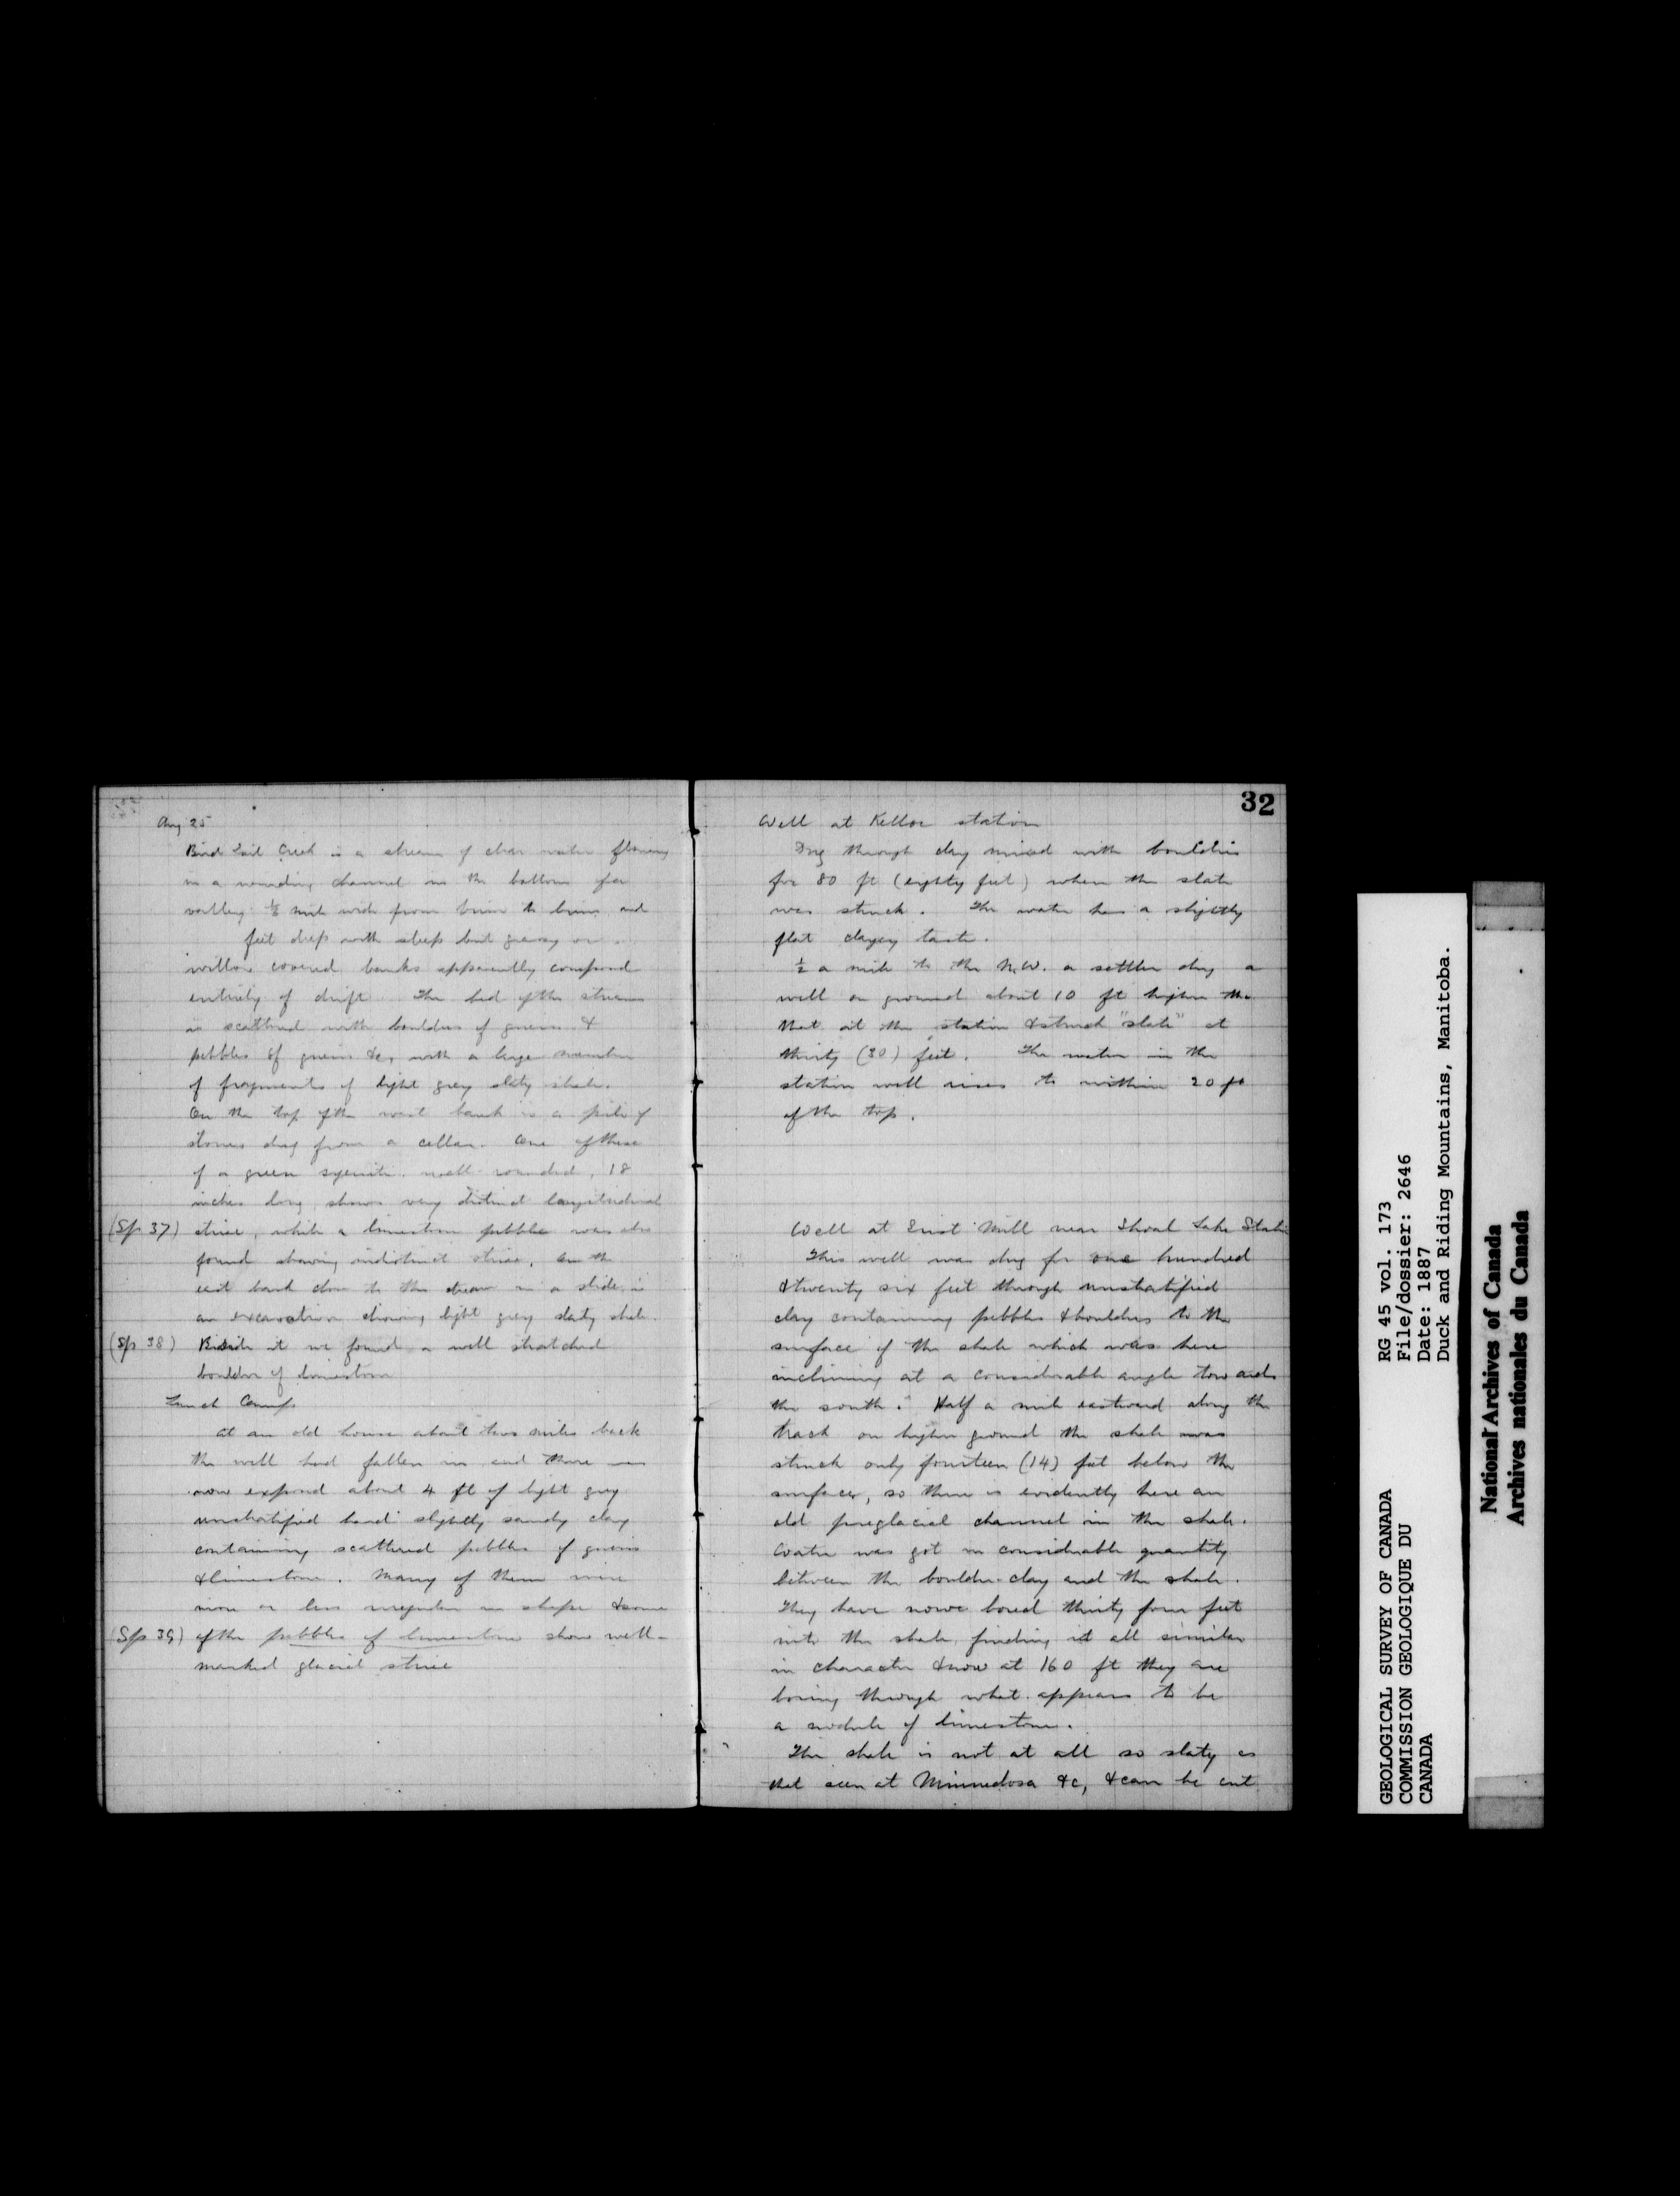 Aug 25
Bird Tail Creek is a stream of clear water flowing
in a winding channel in the bottom of a
valley ½ mile wide from brim to brim and
feet deep with steep but grassy or
willow covered banks apparently composed
entirely of drift The bed of the stream
is scattered with boulders of gneiss &
pebbles of gneiss &c, with a large number
of fragments of light grey slaty shale.
On the top of the west bank is a pile of
stones dug from a cellar. One of these
of a green syenite well rounded, 18
inches long shows very distinct longitudinal
(Sp 37) striae, while a limestone pebble was also
found showing indistinct striae. On the
east bank close to the stream in a slide is
an excavation showing light grey slaty shale.
(Sp 38) Beside it we found a well scratched
boulder of limestone
Lunch Camp.
At an old house about two miles back
the well had fallen in and there is
now exposed about 4 ft of light grey
unstratified hard slightly sandy clay
containing scattered pebbles of gneiss
& limestone. Many of them were
more or less irregular in shape & some
(Sp 39) of the pebbles of limestone show well-
marked glacial striae
32
Well at Kelloe station
Dug through clay mixed with boulders
for 80 ft (eighty feet) when the slate
was struck. The water has a slightly
flat clayey taste.
½ a mile to the N.W. a settler dug a
well on ground about 10 ft higher than
that at the station & struck "slate" at
thirty (30) feet. The water in the
station well rises to within 20 ft
of the top.
Well at Grist Mill near Shoal Lake Station
This well was dug for one hundred
& twenty six feet through unstratified
clay containing pebbles & boulders to the
surface of the shale which was here
inclining at a considerable angle towards
the south. Half a mile eastward along the
track on higher ground the shale was
struck only fourteen (14) feet below the
surface, so there is evidently here an
old preglacial channel in the shale.
Water was got in considerable quantity
between the boulder-clay and the shale.
They have now bored thirty four feet
into the shale, finding it all similar
in character & now at 160 ft they are
boring through what appears to be
a nodule of limestone.
The shale is not at all so slaty as
that seen at Minnedosa &c, & can be cut
GEOLOGICAL SURVEY OF CANADA
COMMISSION GEOLOGIQUE DU
CANADA
RG 45 vol. 173
File/dossier: 2646
Date: 1887
Duck and Riding Mountains, Manitoba.
National Archives of Canada
Archives nationales du Canada